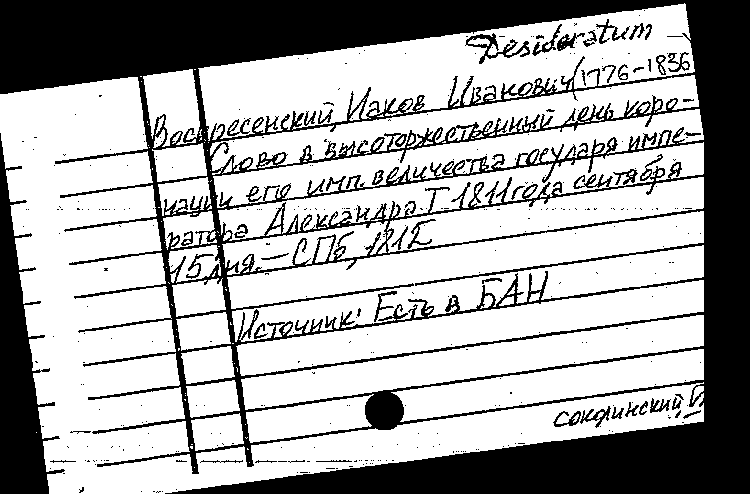 Desideratum
Воскресенский, Иаков Иванович (1776-1836
Слово в высоторжественный день коро-
нации его имп. величества государя импе-
ратора Александра I 1811 года сентября
15 дня. — СПб, 1812
Источник: Есть в БАН
Сокол